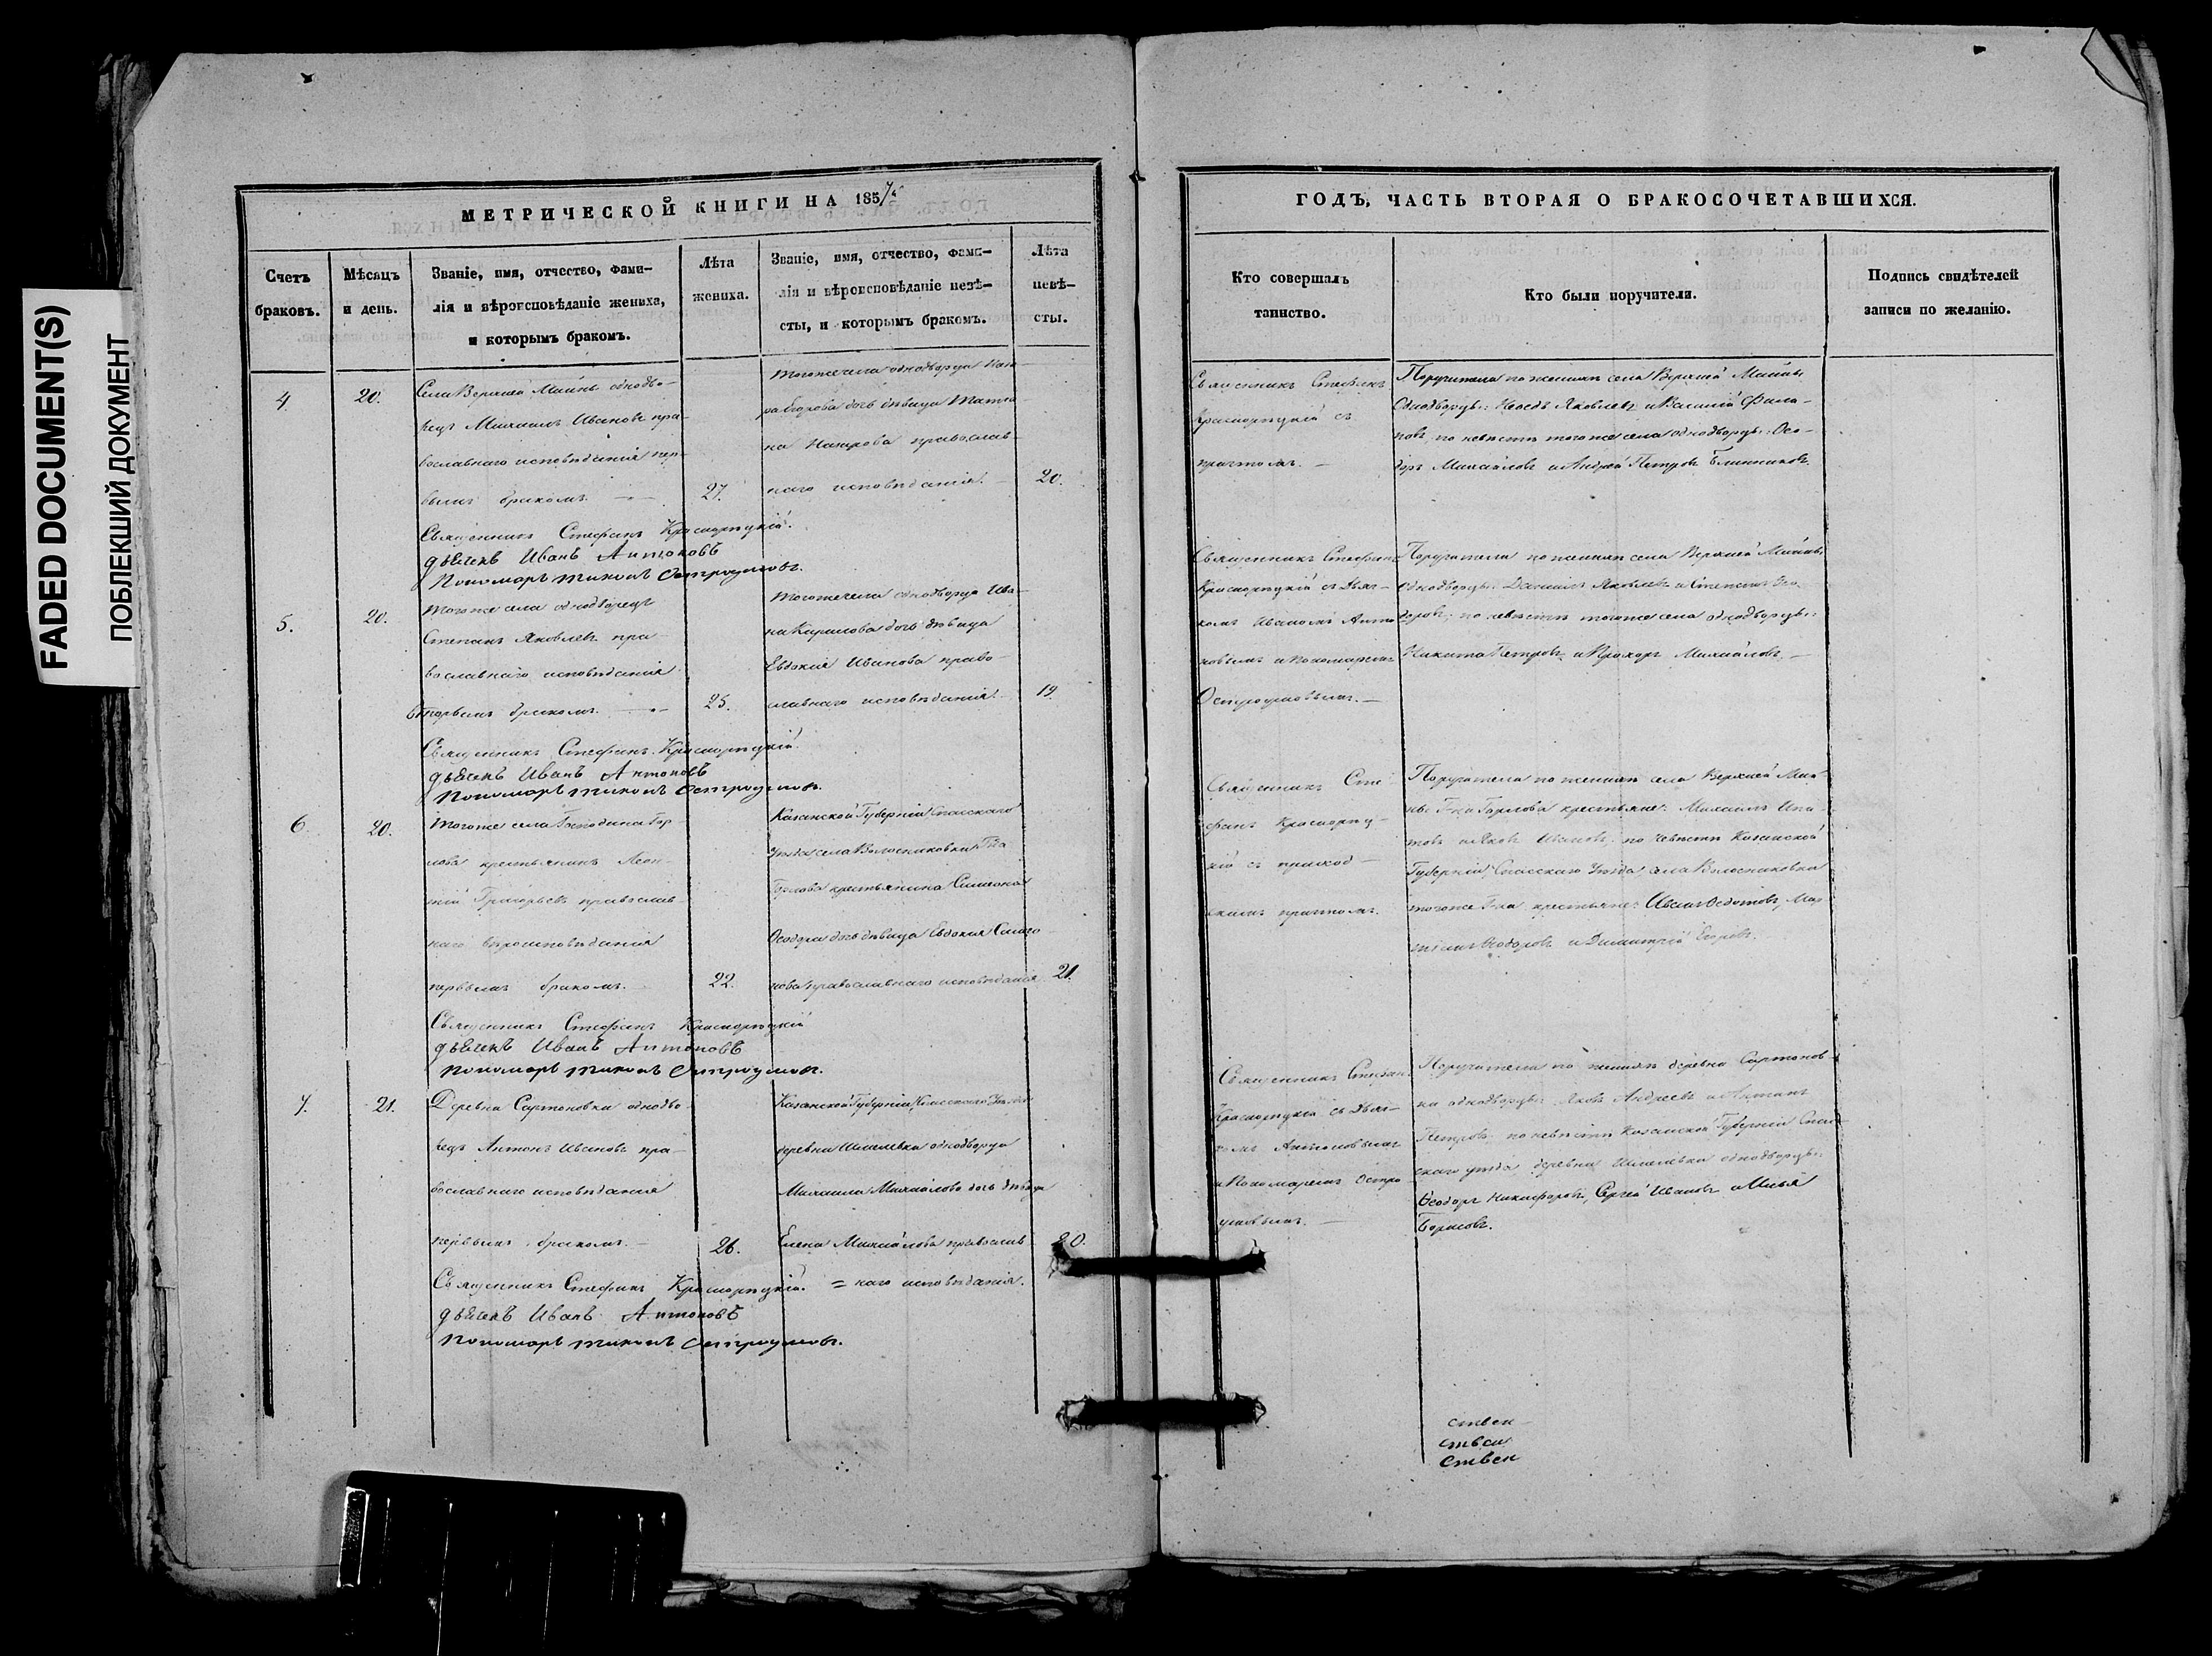 FADED DOCUMENT(S)
ПОБЛЕКШИЙ ДОКУМЕНТ
МЕТРИЧЕСКОЙ КНИГИ НА 185
Счетъ браковъ.
Мѣсяцъ и день.
Званіе, имя, отчество, фами-
лія и вѣроисповѣданіе жениха,
и которымъ бракомъ.
Лѣта жениха.
Званіе, имя, отчество, фами-
лія и вѣроисповѣданіе невѣ-
сты, и которымъ бракомъ.
Лѣта невѣ-
сты.
4.
20.
Села Верхней Майны однодво-
рецъ Михаилъ Ивановъ пра-
вославнаго исповѣданія пер-
вымъ бракомъ.
27.
тогоже села однодворца
дочь дѣвица Матро-
на православ-
наго исповѣданія.
20.
Священникъ Стефанъ Красноряцкій.
дьячекъ Иванъ Антоновъ
Пономарь тихонъ Остроумовъ.
5.
20.
тогоже села однодворецъ
Степанъ Яковлевъ пра-
вославнаго исповѣданія
вторымъ бракомъ.
25.
тогоже села однодворца Ива-
на Кирилова дочь дѣвица
Евдокія Иванова право-
славнаго исповѣданія.
19.
Священникъ Стефанъ Красноряцкій.
дьячекъ Иванъ Антоновъ
Пономарь тихонъ Остроумовъ.
6.
20.
тогоже села Господина Гор-
лова крестьянинъ Леон-
тій Григорьевъ православ-
наго вѣроисповѣданія
первымъ бракомъ.
22.
Казанской Губерніи Спасскаго
Уѣзда села Волостниковки Г-на
Горлова крестьянина Симеона
Ѳеодора дочь дѣвица Евдокія Симео-
нова православнаго исповѣданія
21.
Священникъ Стефанъ Красноряцкій
дьячекъ Иванъ Антоновъ
Пономарь тихонъ Остроумовъ.
7.
21.
Деревни Сартоновки однодво-
рецъ Антонъ Ивановъ пра-
вославнаго исповѣданія
первымъ бракомъ.
26.
Казанской Губерніи Спасскаго Уѣзда
деревни однодворца
Михаила Михайлова дочь дѣвица
Елена Михайлова православ-
=наго исповѣданія.
20.
Священникъ Стефанъ Красноряцкій.
дьячекъ Иванъ Антоновъ
Пономарь тихонъ Остроумовъ.
ГОДЪ, ЧАСТЬ ВТОРАЯ О БРАКОСОЧЕТАВШИХСЯ.
Кто совершалъ
таинство.
Кто были поручители.
Подпись свидѣтелей
записи по желанію.
Священникъ Стефанъ
Красноряцкій съ
причтомъ.
Поручители по женихѣ села Верхней Майны
Однодворцы: Яковлевъ и Василій Фили-
повъ, по невѣстѣ тогоже села однодворцы: Ѳео-
доръ Михайловъ и Андрей Петровъ Блинниковъ.
Священникъ Стефанъ
Красноряцкій съ Дьяч-
комъ Иваномъ Анто-
новымъ и Пономаремъ
Остроумовымъ.
Поручители по женихѣ села Верхней Майны
Однодворцы: Даниилъ Яковлевъ и Степанъ Ѳео-
доровъ; по невѣстѣ тогоже села однодворцы:
Никита Петровъ и Прохоръ Михайловъ.
Священникъ Сте-
фанъ Красноряц-
кій съ приход-
скимъ причтомъ.
Поручители по женихѣ села Верхней Май-
ны Г-на Горлова крестьяне: Михаилъ Ипа-
товъ и Яковъ Ивановъ. по невѣстѣ Казанской
Губерніи, Спасскаго Уѣзда села Волостниковки
тогоже Г-на крестьяне: Иванъ Ѳедотовъ, Мар-
Ѳеодоровъ и Димитрій Егоровъ.
Священникъ Стефанъ
Красноряцкій съ Дьяч-
комъ Антоновымъ
и Пономаремъ Остро-
умовымъ.
Поручители по женихѣ деревни Сартонов-
ки однодворцы: Яковъ Андреевъ и Антонъ
Петровъ, по невѣстѣ Казанской Губерніи Спас-
скаго уѣзда деревни однодворцы:
Ѳеодоръ Никифоровъ, Сергей Ивановъ и Илья
Борисовъ.
ствен
ствен
ствен